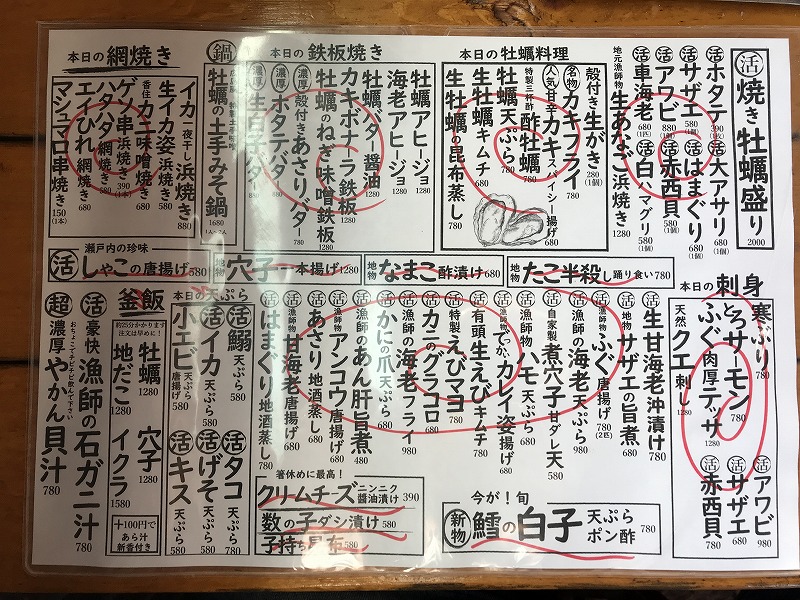 ㊋焼き牡蠣盛り 2000
活ホタテ 390(1枚)
活大アサリ 680
活サザエ 580(1個)
活はまぐり 680
活アワビ 880(1個)
活赤西貝 580(1個)
活車海老 680(1匹)
活白ハマグリ 580
地元漁師物 生あなご浜焼き 1280
本日の牡蠣料理
殻付き生がき 280(1個)
名物 カキフライ 780
人気 甘辛カキスパイシー揚げ 680
牡蠣天ぷら 780
特製三杯酢 酢牡蠣 780
生牡蠣キムチ 580
生牡蠣の昆布蒸し 780
本日の鉄板焼き
牡蠣アヒージョ 1280
海老アヒージョ 1280
牡蠣バター醤油 1280
カキボナーラ鉄板 1280
牡蠣のねぎ味噌鉄板 1280
濃厚 殻付きあさりバター 780
濃厚 ホタテバター 780
濃厚 生白子バター 880
鍋
牡蠣の土手みそ鍋 1680
本日の網焼き
イカ一夜干し浜焼き 880
生イカ姿浜焼き 580
香住 カニ味噌焼き 680
ゲソ串浜焼き 390(1本)
ハタハタ網焼き 680
エイひれ網焼き 680
マシュマロ串焼き 150(1本)
瀬戸内の珍味
活しゃこの唐揚げ 580
地物 穴子一本揚げ 1280
地物 なまこ酢漬け 680
地物 たこ半殺し踊り食い 780
本日の刺身
寒ぶり 780
とろサーモン 780
ふぐ肉厚テッサ 1280
天然クエ刺し 1280
活アワビ 980
活サザエ 680
活赤西貝 780
生甘海老沖漬け 780
地物 サザエの旨煮 680
漁師物 ふぐ唐揚げ 780(2匹)
活漁師の海老天ぷら 980
自家製 煮穴子甘ダレ天 580
漁師物 ハモ天ぷら 680
でっかいカレイ姿揚げ 680
有頭生えびキムチ 780
特製えびマヨ 780
カニのグラコロ 680
活漁師の海老フライ 980
活かにの爪天ぷら 580
漁師のあん肝旨煮 480
漁師物 アンコウ唐揚げ 680
活あさり地酒蒸し 680
漁師物 甘海老唐揚げ 680
活はまぐり地酒蒸し 780
箸休めに最高!
クリームチーズニンニク醤油漬け 390
数の子ダシ漬け 580
子持ち昆布 580
今が!旬
新物 鱈の白子 天ぷら ポン酢 780
本日の天ぷら
活鰯天ぷら 580
活イカ天ぷら 580
小エビ唐揚げ 580
活タコ天ぷら 780
活げそ天ぷら 580
活キス天ぷら 580
釜飯
約25分かかります
注文は早めに!
牡蠣 1280
地だこ 1280
穴子 1280
イクラ 1580
+100円で
あら汁
新香付き
活豪快漁師の石ガニ汁 780
おちょこでチビチビ飲んで下さい
超濃厚やかん貝汁 780